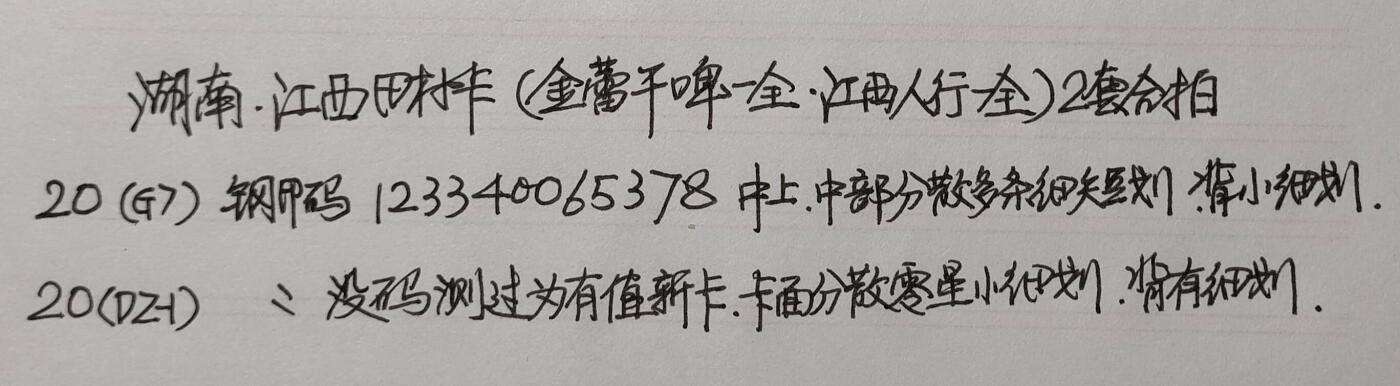 湖南.江西田村卡(金蕾干啤一全.江西人行一全)2套合拍
20(G7) 钢印码 123340065378 中上.中部分散多条细短划.背小细划.
20(DZ-1) 〃 没码测过为有值新卡.卡面分散零星小细划.背有细划.